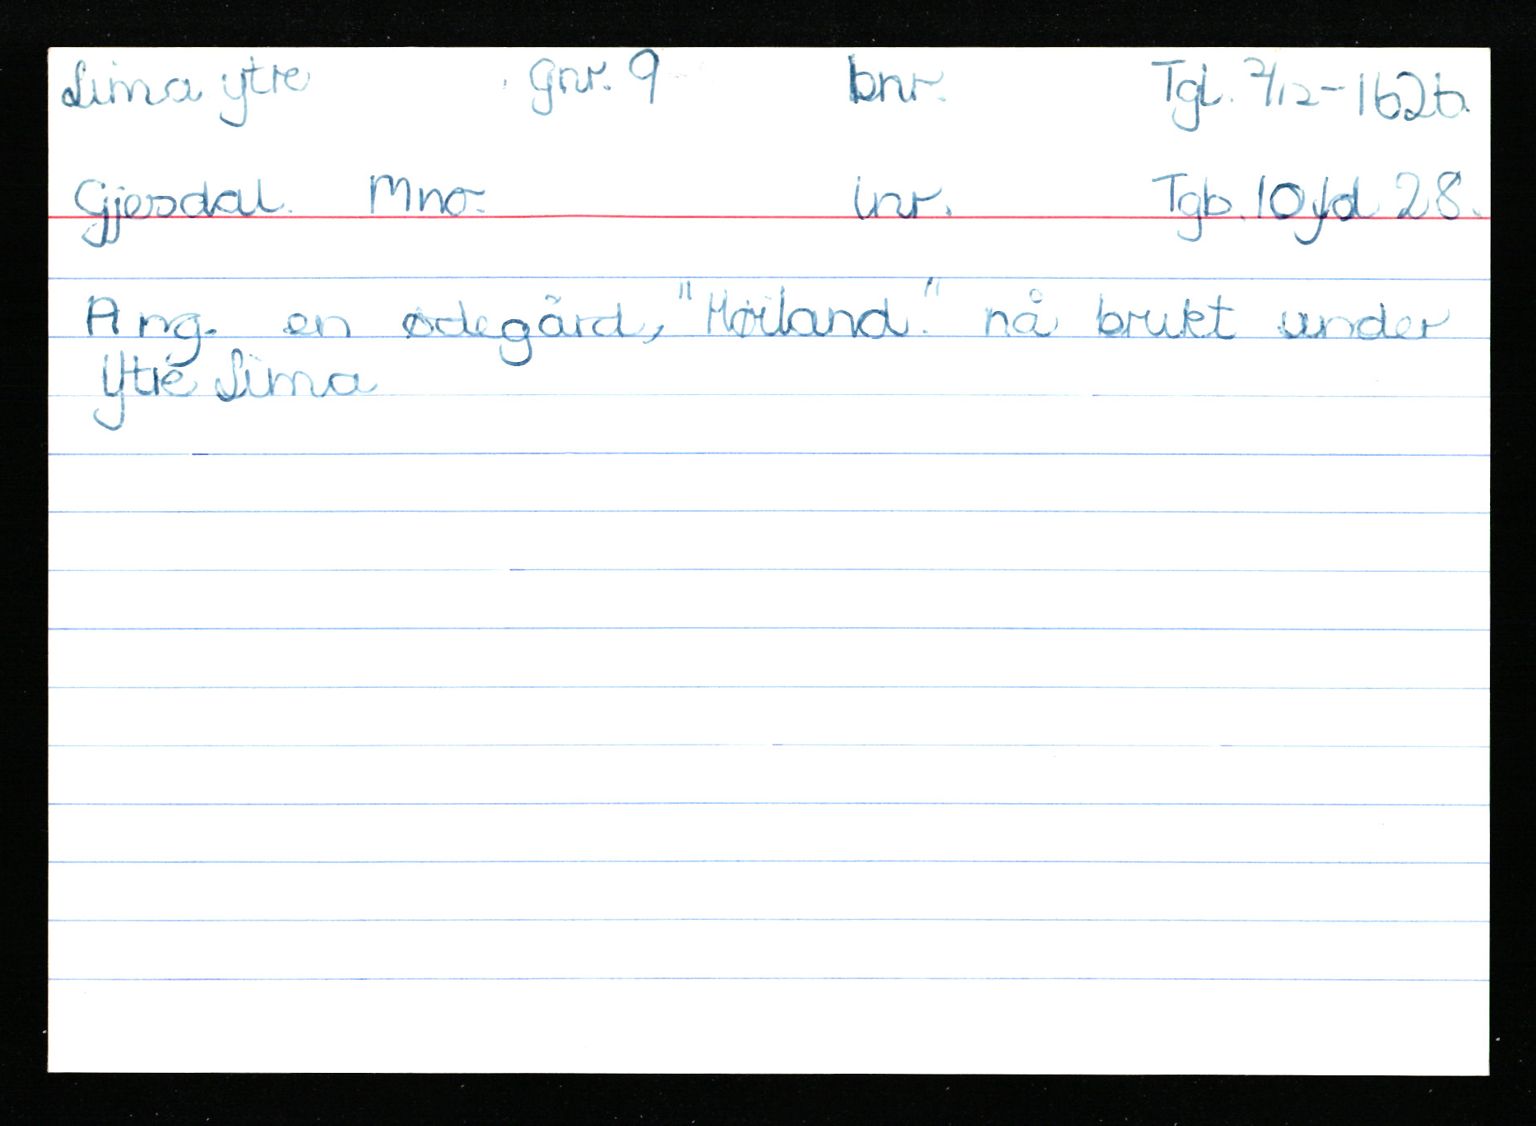 Lima ytre gnr. 9 bnr. Tgl. 2/12-1626.
Gjesdal. Mno. lnr. Tgb. 10 fol 28.
Ang. en ødegård, "Høiland." nå brukt under
Ytre Lima